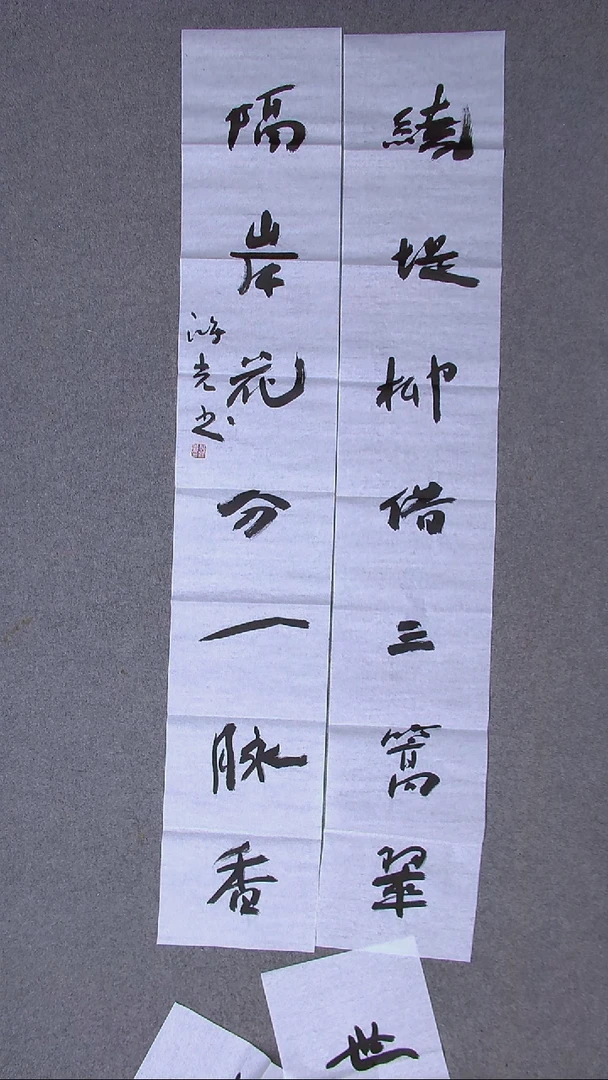 繞堤柳借三篙翠
隔岸花分一脉香
光书
世